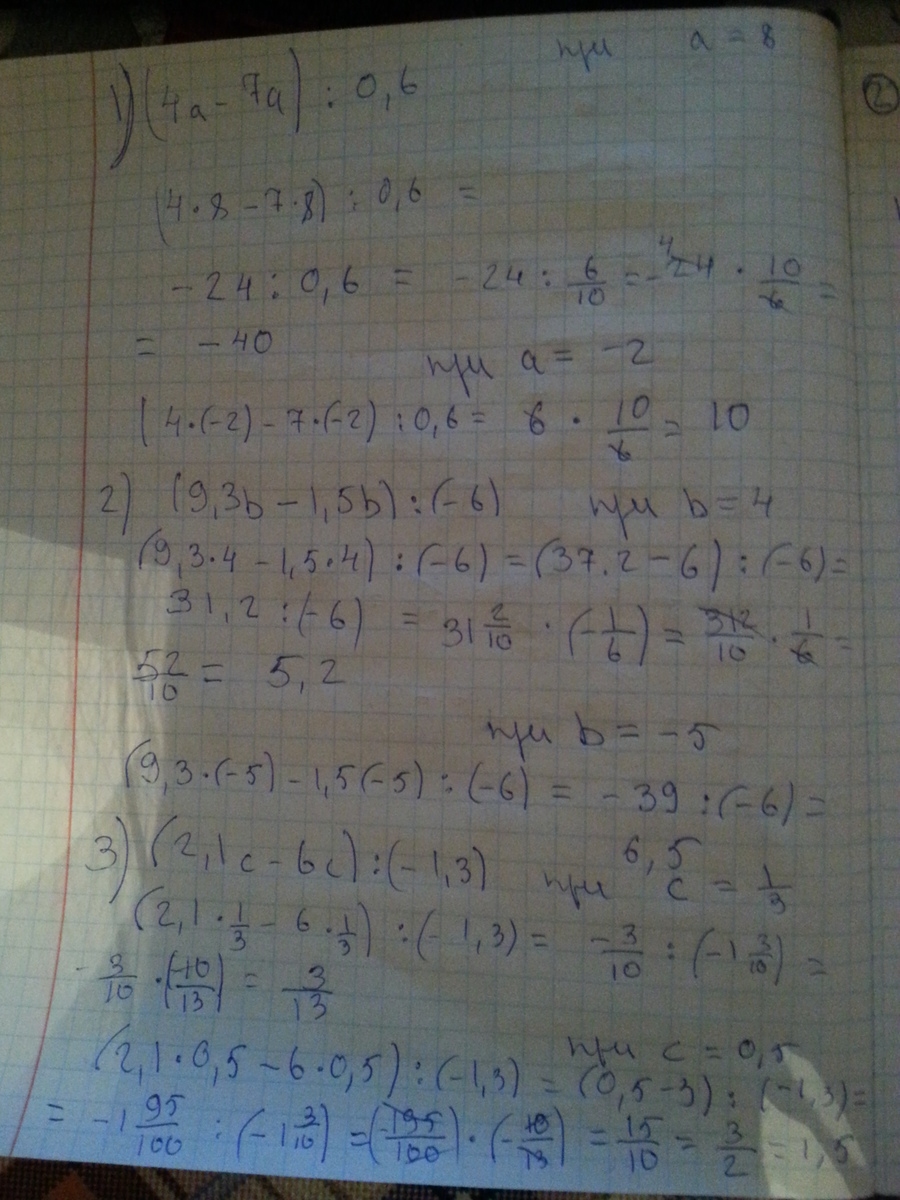 при a = 8
1) (4a - 7a) : 0,6
(2)
(4·8 - 7·8) : 0,6 =
-24 : 0,6 = -24 : 6/10 = -24 4 · 10/6 =
= -40
при a = -2
(4·(-2) - 7·(-2) : 0,6 = 6 · 10/6 = 10
2) (9,3b - 1,5b) : (-6) при b = 4
(9,3·4 - 1,5·4) : (-6) = (37.2 - 6) : (-6) =
31,2 : (-6) = 31 2/10 · (-1/6) = 312/10 · 1/6 =
52/10 = 5,2
при b = -5
(9,3·(-5) - 1,5(-5) : (-6) = -39 : (-6) =
6,5
3) (2,1c - 6c) : (-1,3) при c = 1/3
(2,1·1/3 - 6·1/3) : (-1,3) = -3/10 : (-1 3/10) =
-3/10 · (-10/13) = 3/13
при c = 0,5
(2,1·0,5 - 6·0,5) : (-1,3) = (0,5-3) : (-1,3) =
= -1 95/100 : (-1 3/10) = (-195/100) · (-10/13) = 15/10 = 3/2 = 1,5